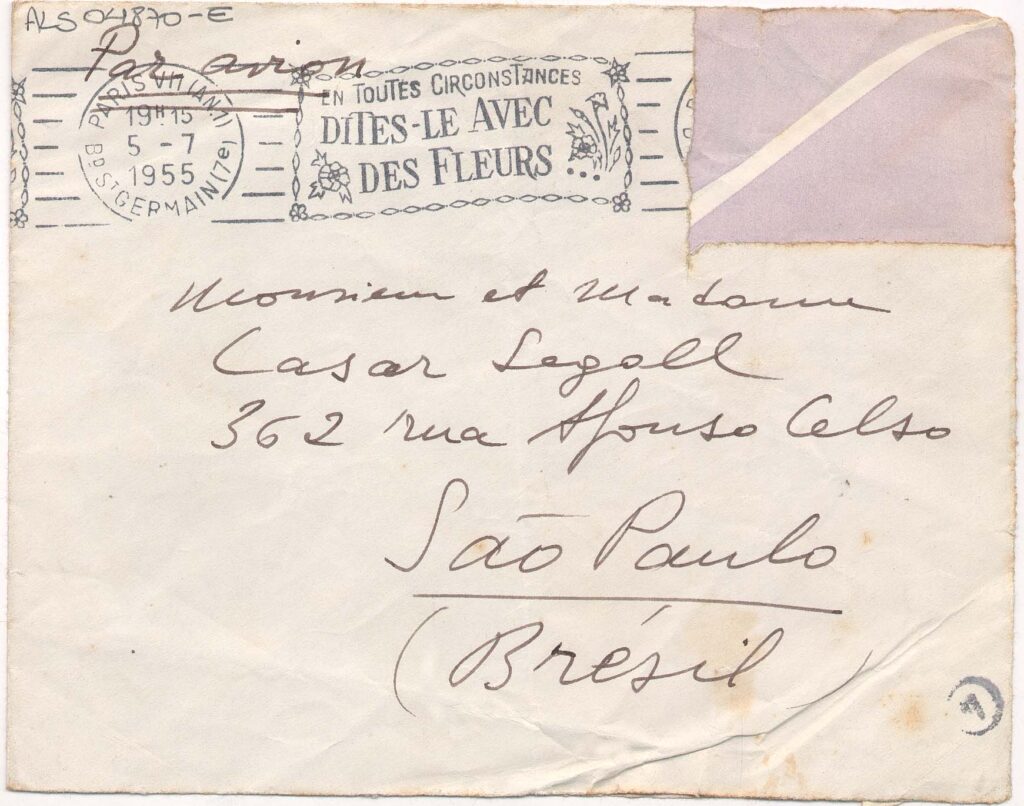 ALS 04870-E
Par avion
PARIS VII (ANN)
19H15
5 -7
1955
BD ST GERMAIN (7e)
EN TOUTES CIRCONSTANCES
DITES-LE AVEC
DES FLEURS...
Monsieur et Madame
Casar Segall
362 rua Afonso Celso
São Paulo
(Brésil)